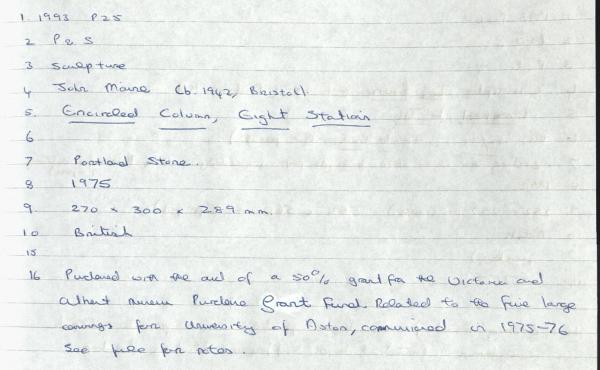 1. 1993 P25
2 P & S
3 Sculpture
4 John Maine (b. 1942, Bristol).
5. Encircled Column, Eight Stations
6
7 Portland Stone.
8 1975
9. 270 × 300 × 289 mm.
10 British
15
16 Purchased with the aid of a 50% grant for the Victoria and
Albert Museum Purchase Grant Fund. Related to the five large
carvings for University of Aston, commissioned in 1975-76
See file for notes.